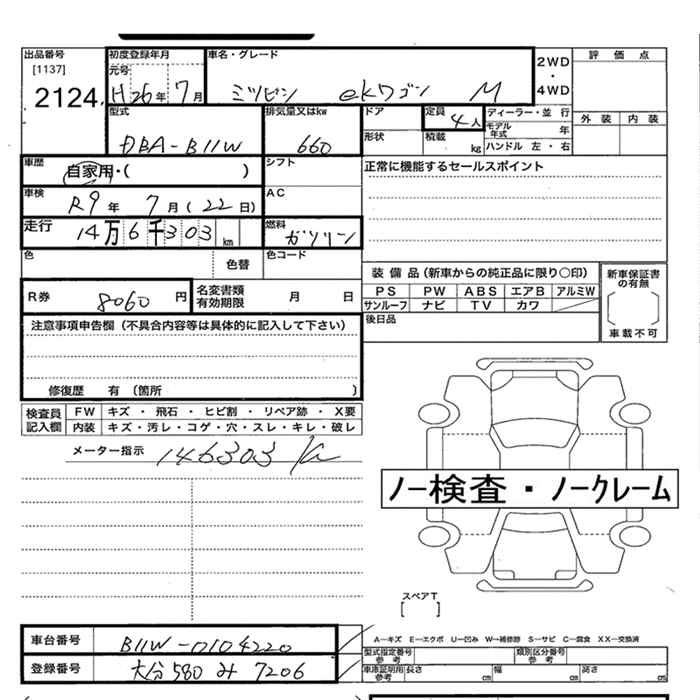 出品番号 初度登録年月 車名・グレード 2WD・4WD 評価点
[1137] 元号
2124 H26年7月 ミツビシ ekワゴン M
型式 排気量又はkw ドア 定員 4人 ディーラー・並行 外装 内装
DBA-B11W 660 形状 積載 kg モデル年式 年
ハンドル 左・右
車歴 自家用・( ) シフト 正常に機能するセールスポイント
車検 R9年 7月 (22日) AC
走行 14万6千303km 燃料 ガソリン
色 色替 色コード
装備品(新車からの純正品に限り○印) 新車保証書の有無
R券 8060円 名変書類有効期限 月 日
PS PW ABS エアB アルミW
サンルーフ ナビ TV カワ
車載不可
注意事項申告欄(不具合内容等は具体的に記入して下さい) 後日品
修復歴 有 (箇所 )
検査員記入欄 FW キズ・飛石・ヒビ割・リペア跡・X要
内装 キズ・汚レ・コゲ・穴・スレ・キレ・破レ
メーター指示 146303 K
ノー検査・ノークレーム
スペアT
[ ]
車台番号 B11W-0104220
A-キズ E-エクボ U-凹み W-補修跡 S-サビ C-腐食 XX-交換済
型式指定番号 参考 類別区分番号 参考
登録番号 大分 580 み 7206
車庫証明用 参考 長さ cm 幅 cm 高さ cm